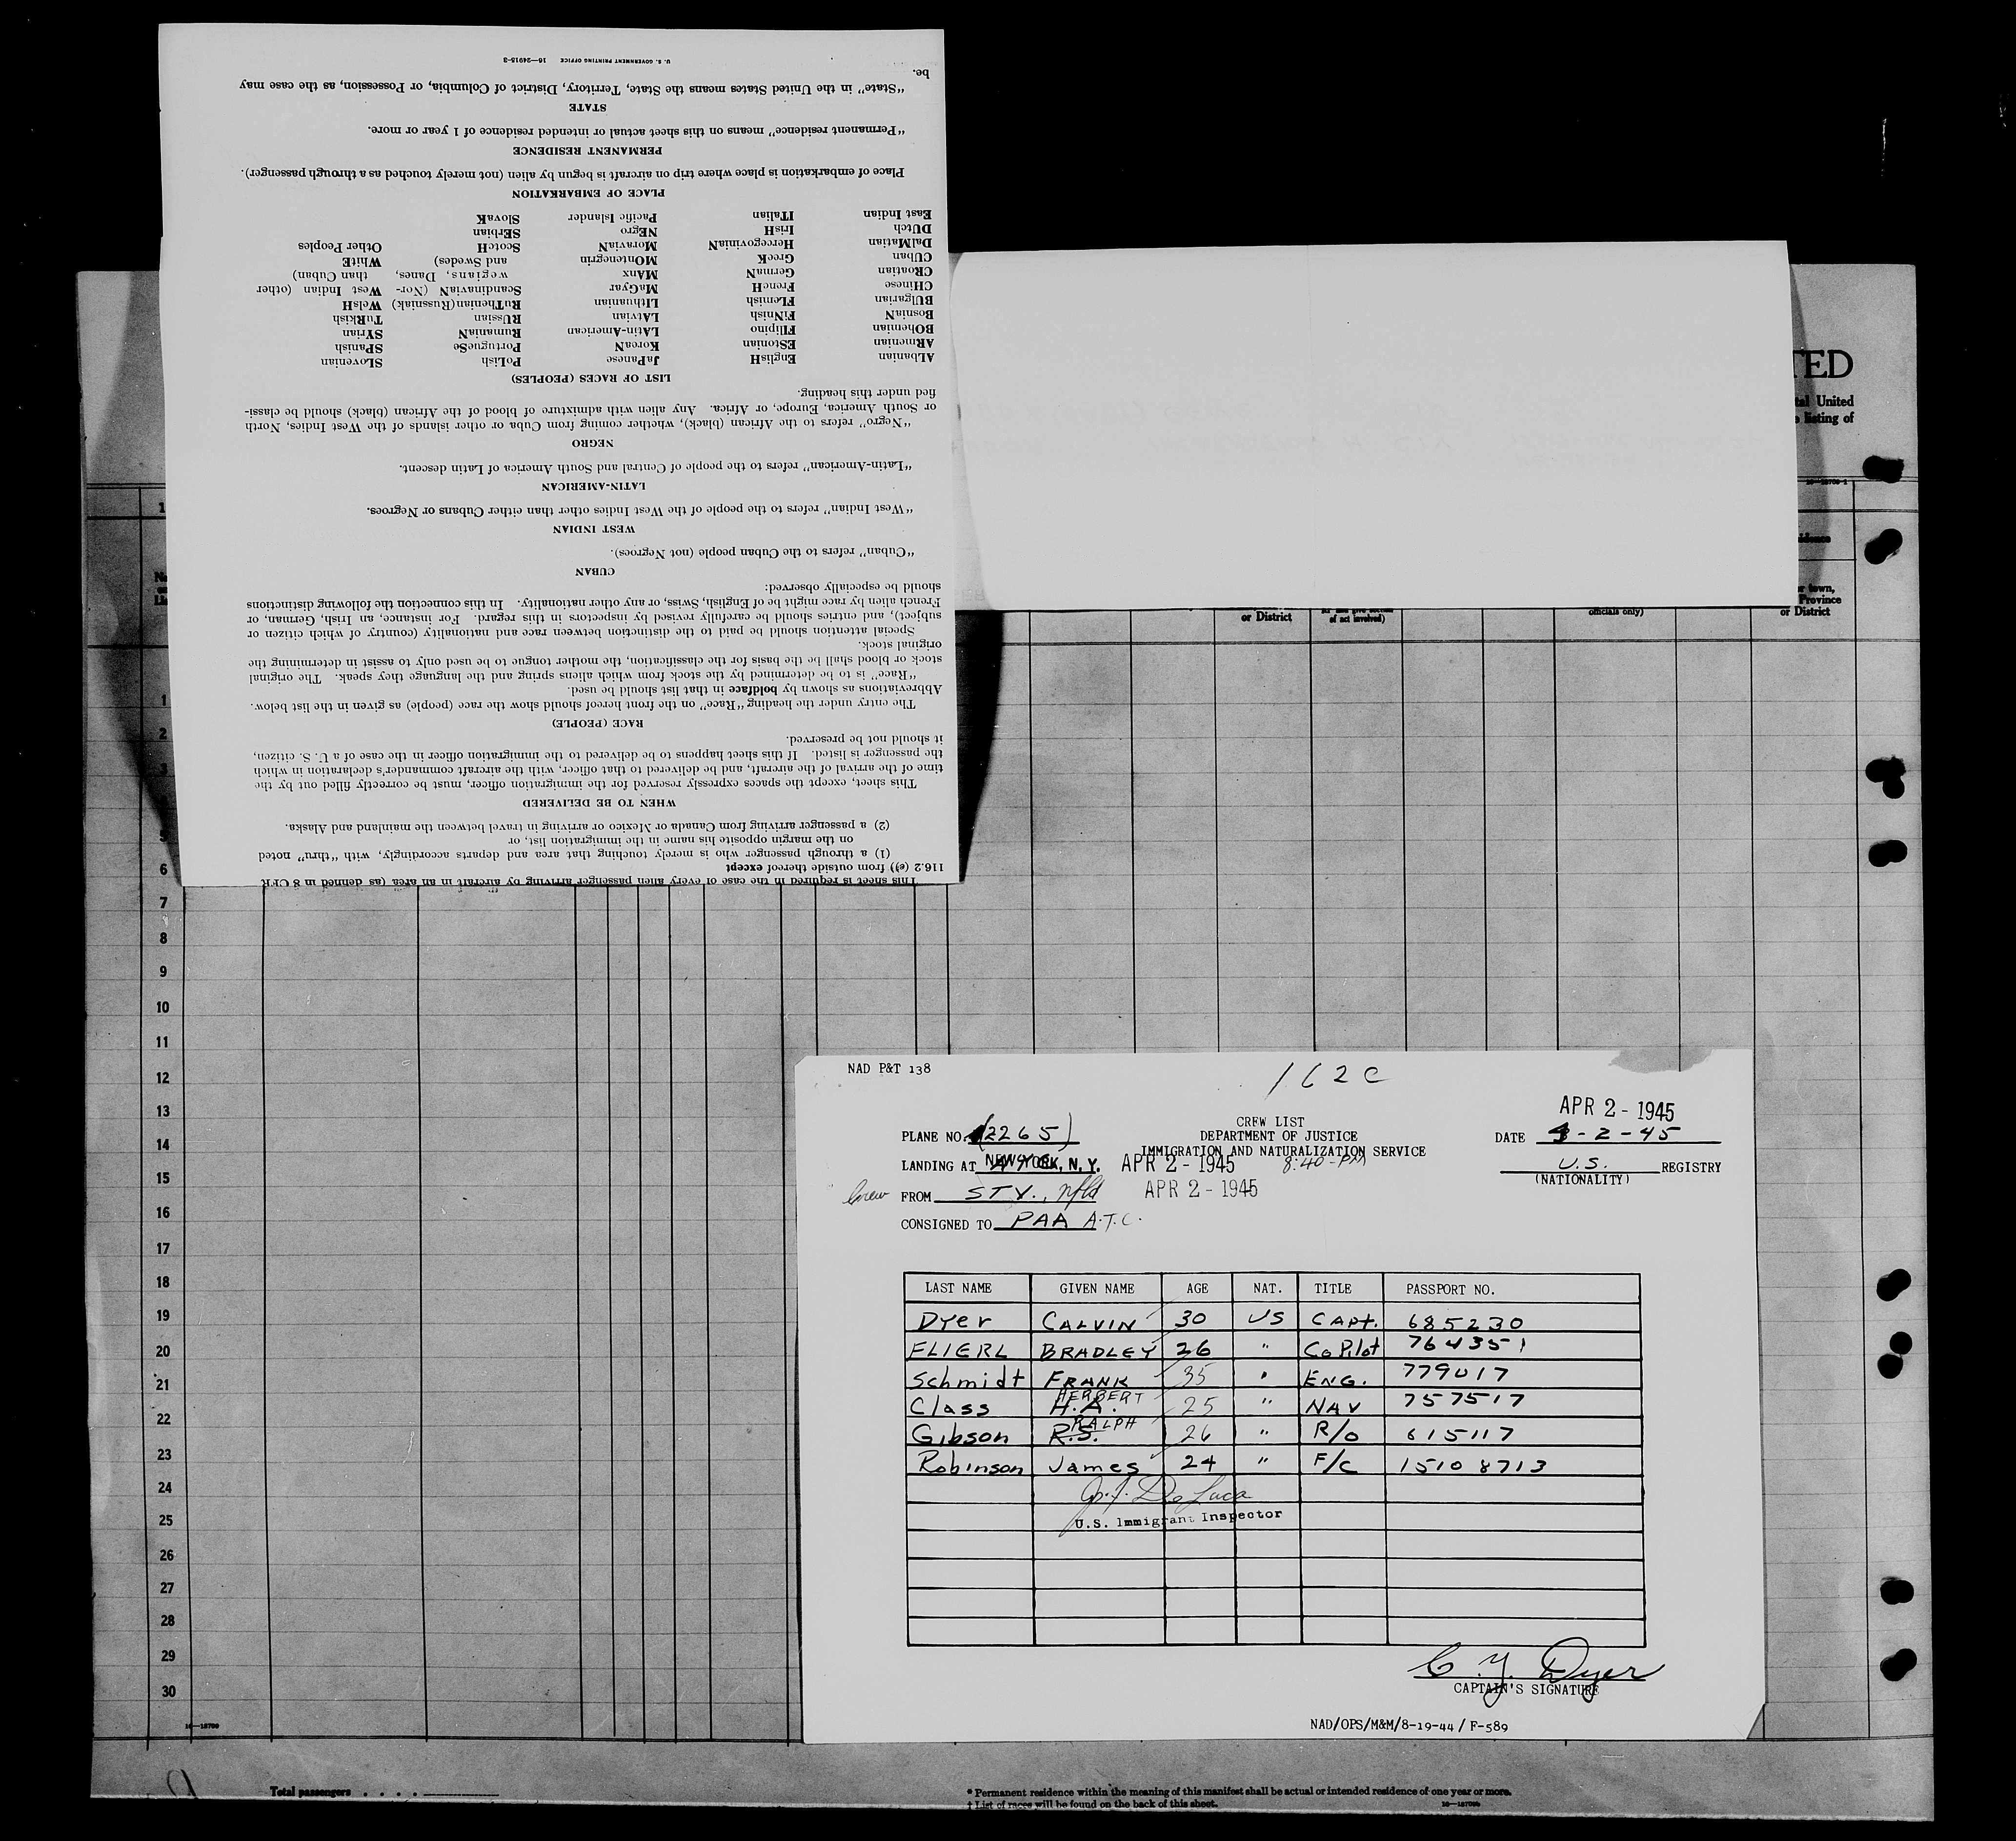 This sheet is required in the case of every alien passenger arriving by aircraft in an area (as defined in 8 CFR
116.2 (e)) from outside thereof except
(1) a through passenger who is merely touching that area and departs accordingly, with “thru” noted
on the margin opposite his name in the immigration list, or
(2) a passenger arriving from Canada or Mexico or arriving in travel between the mainland and Alaska.
WHEN TO BE DELIVERED
This sheet, except the spaces expressly reserved for the immigration officer, must be correctly filled out by the
time of the arrival of the aircraft, and be delivered to that officer, with the aircraft commander's declaration in which
the passenger is listed. If this sheet happens to be delivered to the immigration officer in the case of a U. S. citizen,
it should not be preserved.
RACE (PEOPLE)
The entry under the heading “Race” on the front hereof should show the race (people) as given in the list below.
Abbreviations as shown by boldface in that list should be used.
“Race” is to be determined by the stock from which aliens spring and the language they speak. The original
stock or blood shall be the basis for the classification, the mother tongue to be used only to assist in determining the
original stock.
Special attention should be paid to the distinction between race and nationality (country of which citizen or
subject), and entries should be carefully revised by inspectors in this regard. For instance, an Irish, German, or
French alien by race might be of English, Swiss, or any other nationality. In this connection the following distinctions
should be especially observed:
CUBAN
“Cuban” refers to the Cuban people (not Negroes).
WEST INDIAN
“West Indian” refers to the people of the West Indies other than either Cubans or Negroes.
LATIN-AMERICAN
“Latin-American” refers to the people of Central and South America of Latin descent.
NEGRO
“Negro” refers to the African (black), whether coming from Cuba or other islands of the West Indies, North
or South America, Europe, or Africa. Any alien with admixture of blood of the African (black) should be classi-
fied under this heading.
LIST OF RACES (PEOPLES)
ALbanian EnglisH JaPanese PoLish SLovenian
ARmenian EStonian KoreaN PortugueSe SPanish
BOhemian FIlipino LAtin-American RumaniaN SYrian
BosniaN FiNnish LAtvian RUssian TuRkish
BUlgarian FLemish LIthuanian RuThenian (Russniak) WelsH
CHinese FrencH MaGyar ScandinaviaN (Nor- West Indian (other
CRoatian GermaN MAnx wegians, Danes, than Cuban)
CUban GreeK MOntenegrin and Swedes) WhitE
DalMatian HercegoviniaN MoraviaN ScotcH Other Peoples
DUtch IrisH NEgro SErbian
East Indian ITalian Pacific Islander SlovaK
PLACE OF EMBARKATION
Place of embarkation is place where trip on aircraft is begun by alien (not merely touched as a through passenger).
PERMANENT RESIDENCE
“Permanent residence” means on this sheet actual or intended residence of 1 year or more.
STATE
“State” in the United States means the State, Territory, District of Columbia, or Possession, as the case may
be.
U. S. GOVERNMENT PRINTING OFFICE 16—24915-3
TED
United
listing of
or District
of act involved)
officials only)
town,
Province
or District
1
2
3
5
6
7
8
9
10
11
12
13
14
15
16
17
18
19
20
21
22
23
24
25
26
27
28
29
30
NAD P&T 138
162 C
APR 2 - 1945
CREW LIST
PLANE NO. (2265) DEPARTMENT OF JUSTICE DATE 4-2-45
IMMIGRATION AND NATURALIZATION SERVICE
LANDING AT NEW YORK, N. Y. APR 2 - 1945 8:40-PM U.S. REGISTRY
(NATIONALITY)
Crew FROM STV., Nfld APR 2 - 1945
CONSIGNED TO PAA A.T.C.
LAST NAME GIVEN NAME AGE NAT. TITLE PASSPORT NO.
Dyer CALVIN 30 US CAPt. 685230
FLIERL BRADLEY 26 " CoPilot 764351
Schmidt FRANK 35 " ENG. 779017
Class H.A. HERBERT 25 " NAV 757517
Gibson R.S. RALPH 26 " R/o 615117
Robinson James 24 " F/C 15108713
De Luca
U.S. Immigrant Inspector
C. Y. Dyer
CAPTAIN'S SIGNATURE
NAD/OPS/M&M/8-19-44 / F-589
Total passengers . . . .
* Permanent residence within the meaning of this manifest shall be actual or intended residence of one year or more.
† List of races will be found on the back of this sheet.